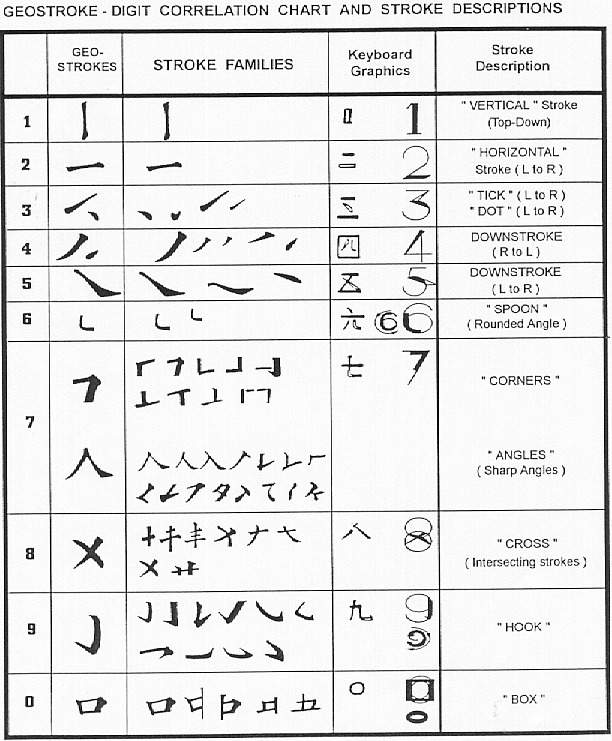 GEOSTROKE - DIGIT CORRELATION CHART AND STROKE DESCRIPTIONS
GEO-
STROKES
STROKE FAMILIES
Keyboard
Graphics
Stroke
Description
1 1 " VERTICAL " Stroke
(Top-Down)
2 二 2 " HORIZONTAL "
Stroke ( L to R )
3 三 3 " TICK " ( L to R )
" DOT " ( L to R )
4 四 4 DOWNSTROKE
( R to L )
5 五 5 DOWNSTROKE
( L to R )
6 六 6 6 " SPOON "
( Rounded Angle )
7 七 7 " CORNERS "
" ANGLES "
( Sharp Angles )
8 八 8 " CROSS "
( Intersecting strokes )
9 九 9 9 " HOOK "
0 ○ 0 " BOX "